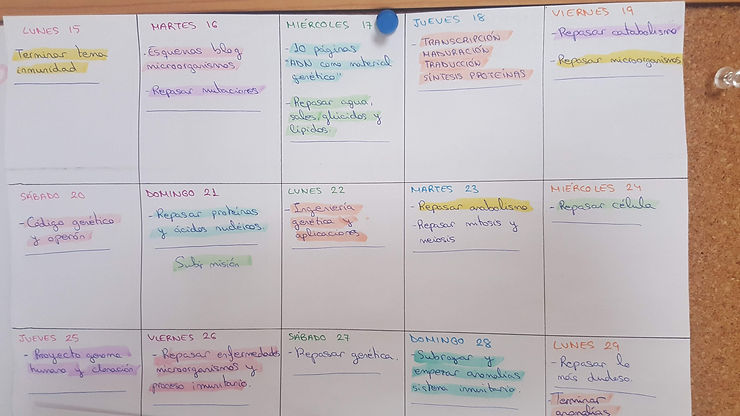 LUNES 15
Terminar tema
inmunidad
MARTES 16
-Esquemas blog
microorganismos.
-Repasar mutaciones
MIÉRCOLES 17
-10 páginas
"ADN como material
genético"
-Repasar agua,
sales, glúcidos y
lípidos.
JUEVES 18
- TRANSCRIPCIÓN
MADURACIÓN
TRADUCCIÓN
SÍNTESIS PROTEÍNAS
VIERNES 19
-Repasar catabolismo
-Repasar microorganismos
SÁBADO 20
-Código genético
y operón
DOMINGO 21
-Repasar proteínas
y ácidos nucleicos.
Subir misión
LUNES 22
-Ingeniería
genética y
aplicaciones
MARTES 23
-Repasar anabolismo
-Repasar mitosis y
meiosis
MIÉRCOLES 24
-Repasar célula
JUEVES 25
-Proyecto genoma
humano y clonación
VIERNES 26
-Repasar enfermedades
microorganismos y
proceso inmunitario.
SÁBADO 27
-Repasar genética.
DOMINGO 28
-Subrayar y
empezar anomalías
sistema inmunitario.
LUNES 29
-Repasar lo
más dudoso.
-Terminar
anomalías